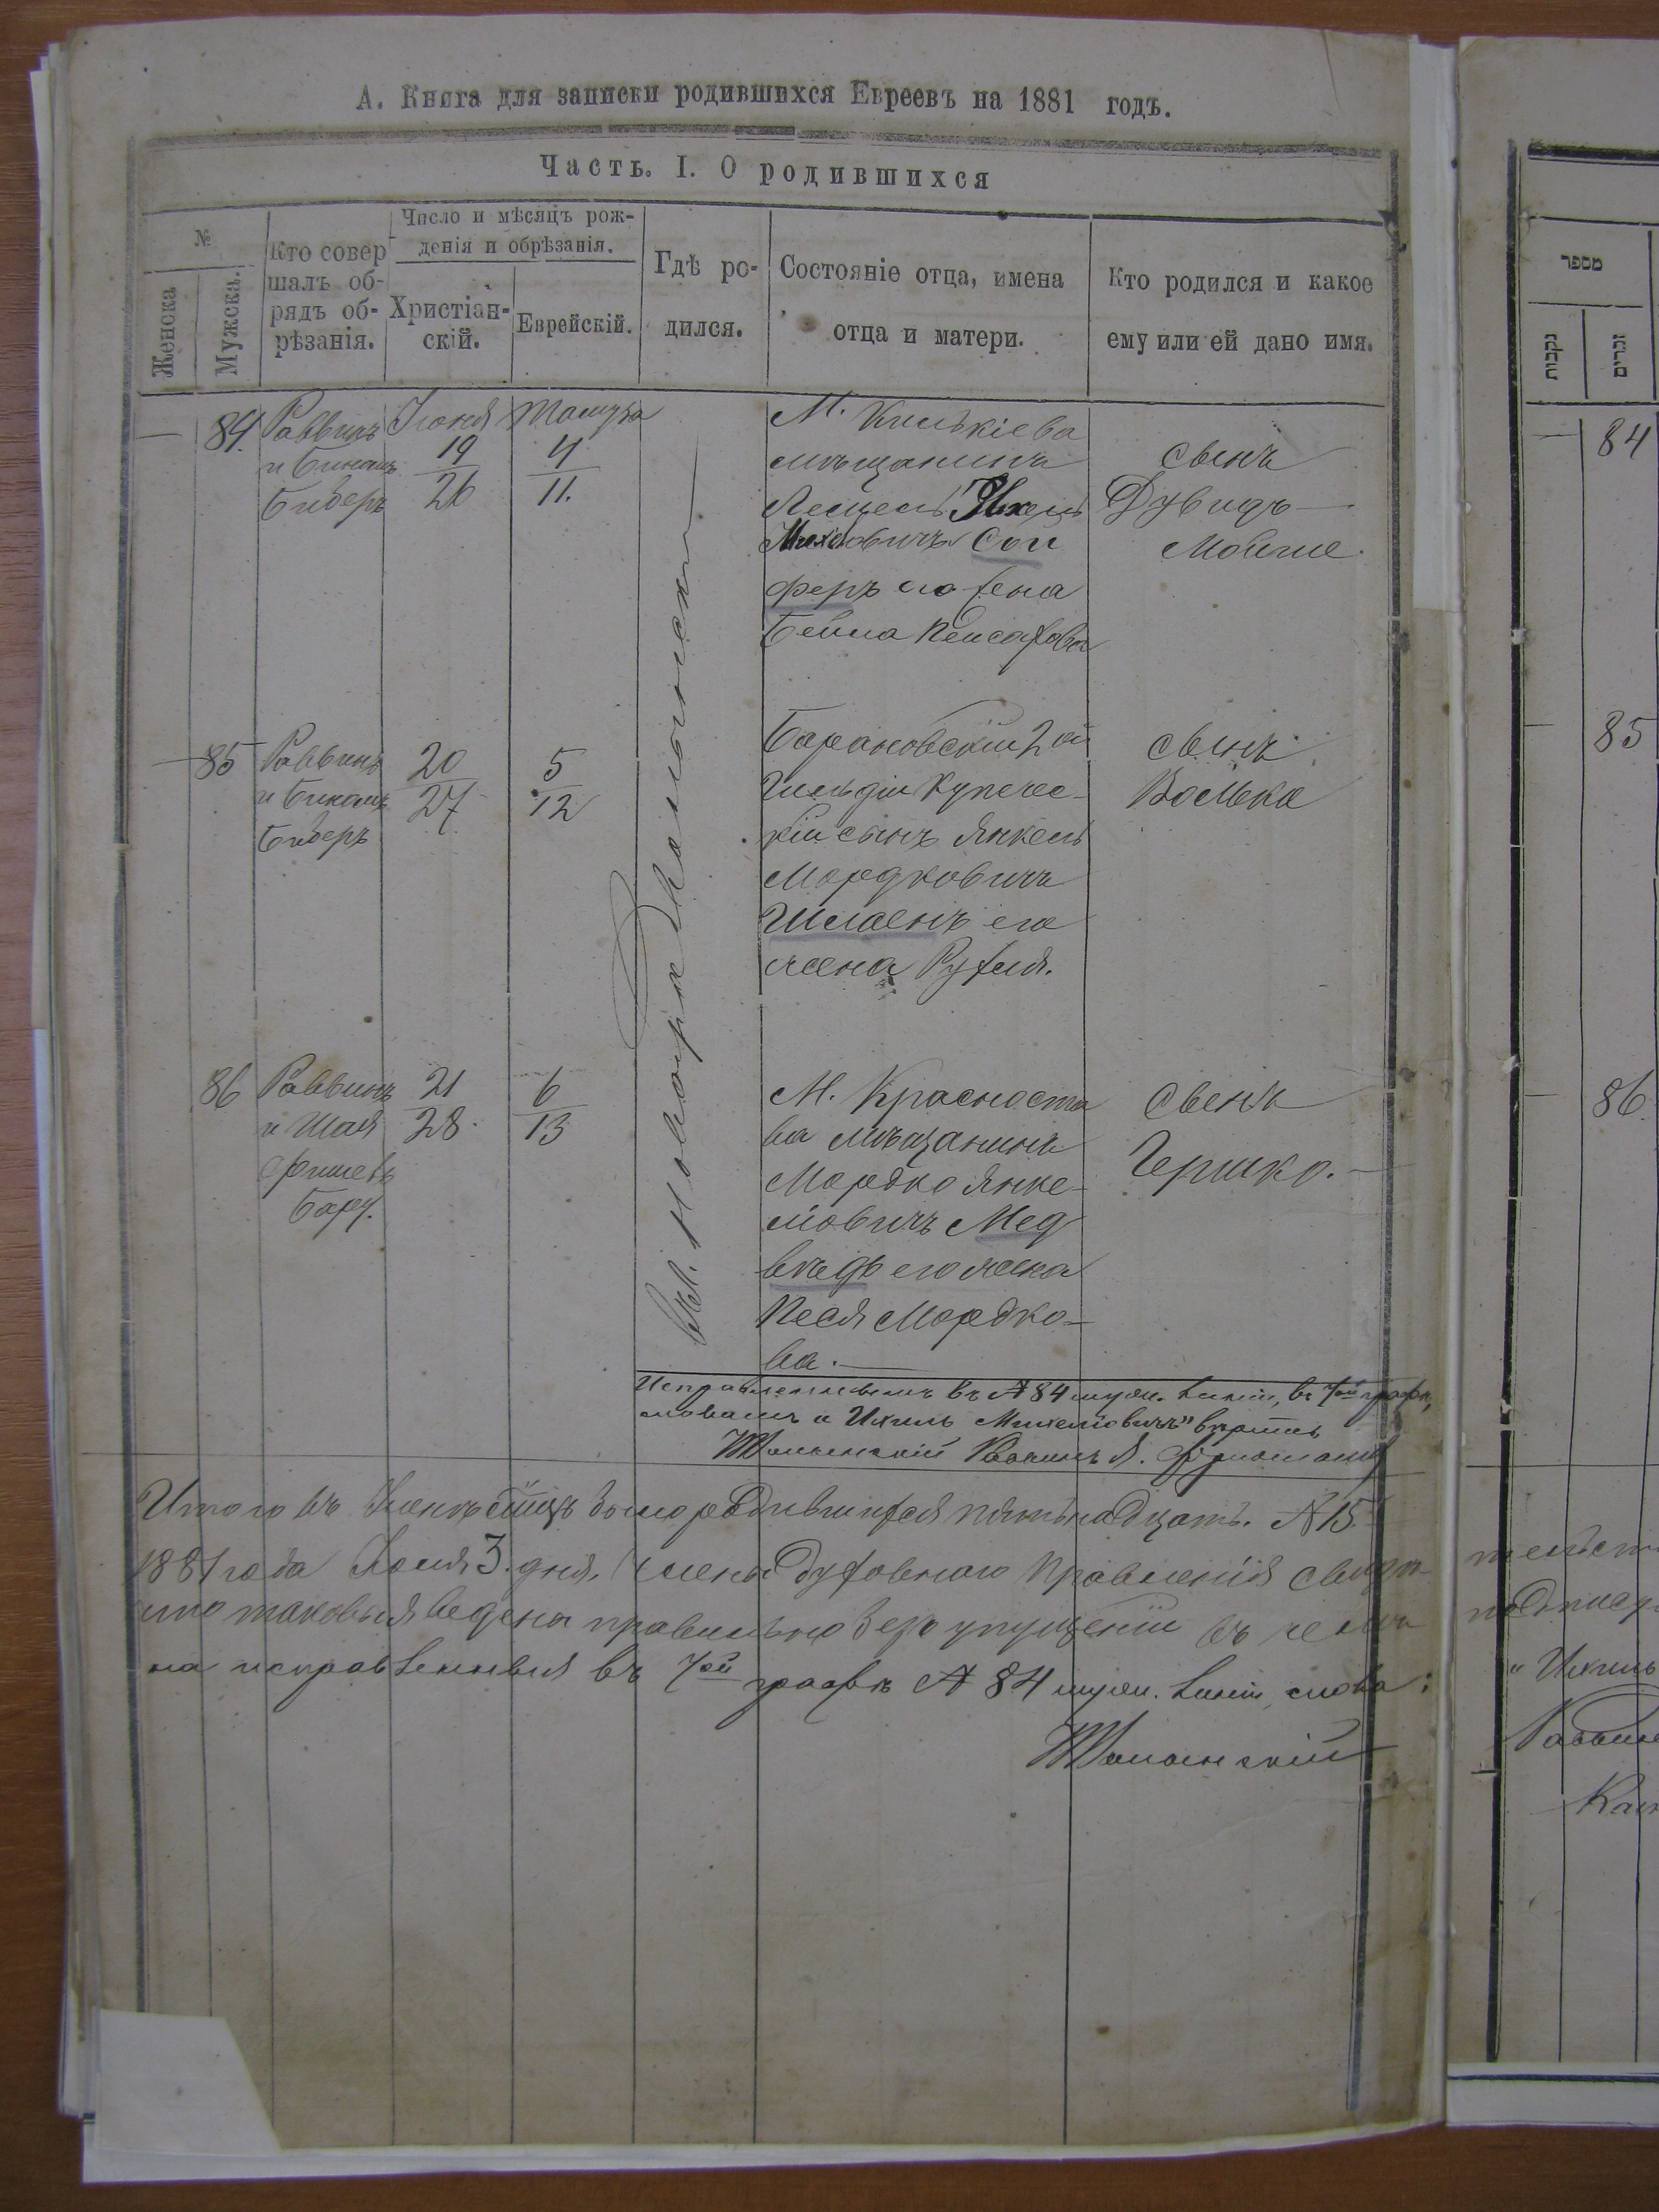 А. Книга для записки родившихся Евреевъ на 1881 годъ.
Часть. I. О родившихся
№
Женска
Мужска.
Кто совер
шалъ об-
рядъ об-
рѣзанія.
Число и мѣсяцъ рож-
денія и обрѣзанія.
Христіан-
скій.
Еврейскій.
Гдѣ ро-
дился.
Состояніе отца, имена
отца и матери.
Кто родился и какое
ему или ей дано имя.
84.
Раввинъ
и Биномъ
Биберъ
Іюня
19
26
Тамуза
4
11.
въ Новоградволынскѣ
М.
мѣщанинъ
Ихель
Михелевичъ Сои
феръ его жена
Бейла Пейсахова
сынъ
Дувидъ
Мойше.
85
Раввинъ
и Биномъ
Биберъ
20
27
5
12
Барановскій 2ой
Гильдіи Купечес-
кій сынъ Янкель
Мордковичъ
Шлаенъ его
жена Рухля.
сынъ
Волька
86
Раввинъ
и Шая
Фишель
21
28
6
13
М. Красноста
ва мѣщанинъ
Мордко Янке-
левичъ Мед
вѣдь его жена
Песя Мордко-
ва.
сынъ
Гершко.
Исправленнымъ въ № 84 муж. линіи, въ 7ой графѣ,
словамъ "Ихиль Михелевичъ" вѣрить
Раввинъ
Итого въ Іюнѣ мѣсяцѣ было родившихся пятьнадцать. № 15.
1881 года Іюля 3. дня, Члены Духовнаго Правленія
что таковыя ведена правильно безъ упущеній въ чемъ
на исправленныя въ 7ой графѣ № 84 муж. линіи, слова:
מספר
נקבות
זכרים
84
85
86
"Ихиль